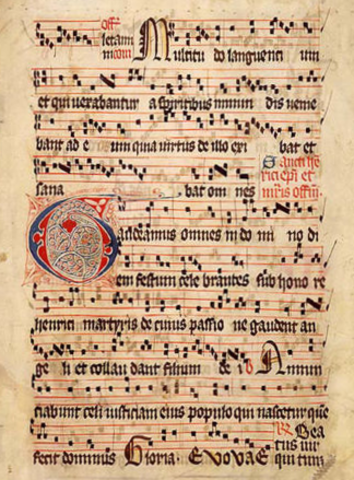 off
letam Multitu do languenci um
et qui uexabantur a spiritibus inmun dis uenie
bant ad e um quia uirtus de illo exi bat et
sana bat om nes Sancti he
rici epi et
mris offm.
Gaudeamus omnes in do mi no di
em festum cele brantes sub hono re
henrici martyris de cuius passio ne gaudent an
ge li et collau dant filium de i Annun
ciabunt celi iusticiam eius populo qui nascetur que
fecit dominus Gloria. EVOVAE Bea
tus uir
qui tim